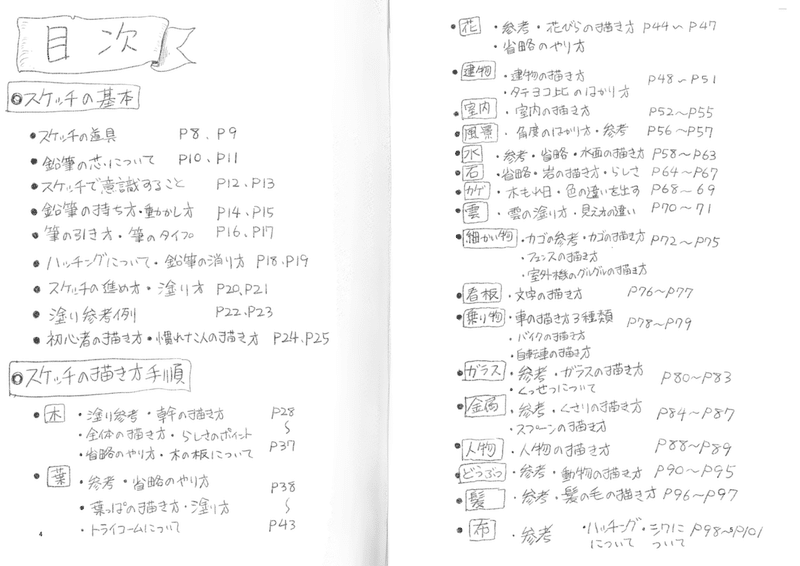 目次
◎スケッチの基本
●スケッチの道具 P8、P9
●鉛筆の芯について P10、P11
●スケッチで意識すること P12、P13
●鉛筆の持ち方・動かし方 P14、P15
●筆の引き方・筆のタイプ P16、P17
●ハッチングについて・鉛筆の消り方 P18、P19
●スケッチの進め方・塗り方 P20、P21
●塗り参考例 P22、P23
●初心者の描き方・慣れた人の描き方 P24、P25
◎スケッチの描き方手順
●木 ・塗り参考・幹の描き方 P28
・全体の描き方・らしさのポイント 〜
・省略のやり方・木の板について P37
●葉 ・参考・省略のやり方 P38
・葉っぱの描き方・塗り方 〜
・トライコームについて P43
4
●花 ・参考・花びらの描き方 P44〜P47
・省略のやり方
●建物 ・建物の描き方 P48〜P51
・タテヨコ比のはかり方
●室内 ・室内の描き方 P52〜P55
●風景 ・角度のはかり方・参考 P56〜P57
●水 ・参考・省略・水面の描き方 P58〜P63
●石 ・省略・岩の描き方・らしさ P64〜P67
●カゲ ・木もれ日・色の違いを出す P68〜69
●雲 ・雲の塗り方・見え方の違い P70〜71
●細かい物 ・カゴの参考・カゴの描き方 P72〜P75
・フェンスの描き方
・室外機のグルグルの描き方
●看板 ・文字の描き方 P76〜P77
●乗り物 ・車の描き方3種類 P78〜P79
・バイクの描き方
・自転車の描き方
●ガラス ・参考・ガラスの描き方 P80〜P83
・くっせつについて
●金属 ・参考・くさりの描き方 P84〜P87
・スプーンの描き方
●人物 ・人物の描き方 P88〜P89
●どうぶつ ・参考・動物の描き方 P90〜P95
●髪 ・参考・髪の毛の描き方 P96〜P97
●布 ・参考 ・ハッチングについて ・シワについて P98〜P101